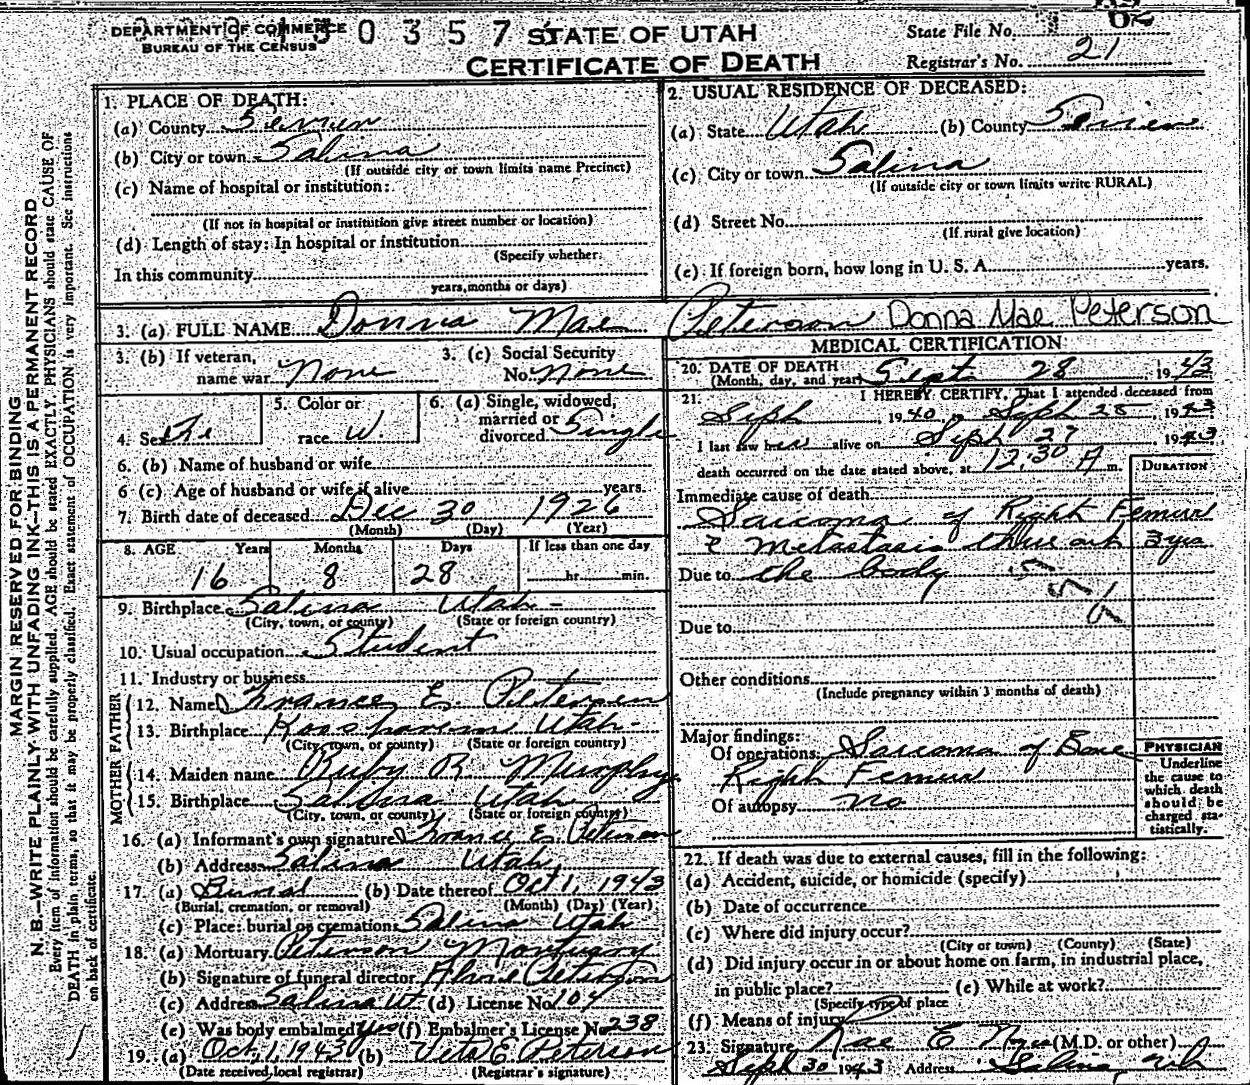 DEPARTMENT OF COMMERCE
BUREAU OF THE CENSUS
30357
STATE OF UTAH
CERTIFICATE OF DEATH
State File No.
Registrar's No. 21
MARGIN RESERVED FOR BINDING
N. B.—WRITE PLAINLY WITH UNFADING INK—THIS IS A PERMANENT RECORD
Every item of information should be carefully supplied. AGE should be stated EXACTLY. PHYSICIANS should state CAUSE OF
DEATH in plain terms, so that it may be properly classified. Exact statement of OCCUPATION is very important. See instructions
on back of certificate.
1. PLACE OF DEATH:
(a) County Sevier
(b) City or town Salina
(If outside city or town limits name Precinct)
(c) Name of hospital or institution:
(If not in hospital or institution give street number or location)
(d) Length of stay: In hospital or institution
(Specify whether
In this community
years, months or days)
2. USUAL RESIDENCE OF DECEASED:
(a) State Utah (b) County Sevier
(c) City or town Salina
(If outside city or town limits write RURAL)
(d) Street No.
(If rural give location)
(e) If foreign born, how long in U. S. A. years.
3. (a) FULL NAME Donna Mae Peterson Donna Mae Peterson
3. (b) If veteran, name war None
3. (c) Social Security No. None
4. Sex Fe
5. Color or race W.
6. (a) Single, widowed, married or divorced Single
6. (b) Name of husband or wife
6 (c) Age of husband or wife if alive years.
7. Birth date of deceased Dec 30 1926
(Month) (Day) (Year)
8. AGE Years Months Days If less than one day
16 8 28 hr. min.
9. Birthplace Salina Utah-
(City, town, or county) (State or foreign country)
10. Usual occupation Student
11. Industry or business
FATHER
12. Name France E. Peterson
13. Birthplace Koosharem Utah-
(City, town, or county) (State or foreign country)
MOTHER
14. Maiden name Ruby R. Murphy
15. Birthplace Salina Utah
(City, town, or county) (State or foreign country)
16. (a) Informant's own signature France E. Peterson
(b) Address Salina Utah,
17. (a) Burial (b) Date thereof Oct 1, 1943
(Burial, cremation, or removal) (Month) (Day) (Year)
(c) Place: burial or cremation Salina Utah
18. (a) Mortuary Peterson Mortuary
(b) Signature of funeral director Peterson
(c) Address Salina Ut (d) License No. 104
(e) Was body embalmed yes (f) Embalmer's License No. 238
19. (a) Oct, 1, 1943 (b) E. Peterson
(Date received local registrar) (Registrar's signature)
MEDICAL CERTIFICATION
20. DATE OF DEATH
(Month, day, and year) Sept 28, 1943
21. I HEREBY CERTIFY, That I attended deceased from
Seph 1940, to Seph 28, 1943
I last saw her alive on Seph 27 1943
death occurred on the date stated above, at 12,30 A m.
DURATION
Immediate cause of death
Sarcoma of Right Femur
metastasis 3 yrs
Due to the body
Due to
Other conditions
(Include pregnancy within 3 months of death)
Major findings:
Of operations Sarcoma of Bone
Right Femur
Of autopsy no
PHYSICIAN
Underline
the cause to
which death
should be
charged sta-
tistically.
22. If death was due to external causes, fill in the following:
(a) Accident, suicide, or homicide (specify)
(b) Date of occurrence
(c) Where did injury occur?
(City or town) (County) (State)
(d) Did injury occur in or about home on farm, in industrial place,
in public place? (e) While at work?
(Specify type of place
(f) Means of injury
23. Signature Rae E Noyes (M.D. or other)
Seph 30 1943 Address Salina, Uh